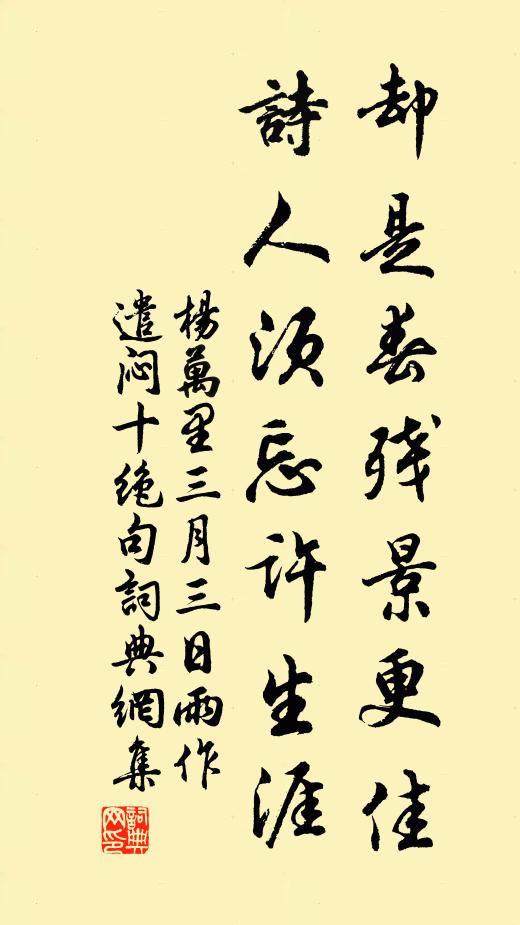 却是春残景更佳
詩人须忘許生涯
楊萬里三月三日雨作
遣悶十絶句詞典網集
詞典网印